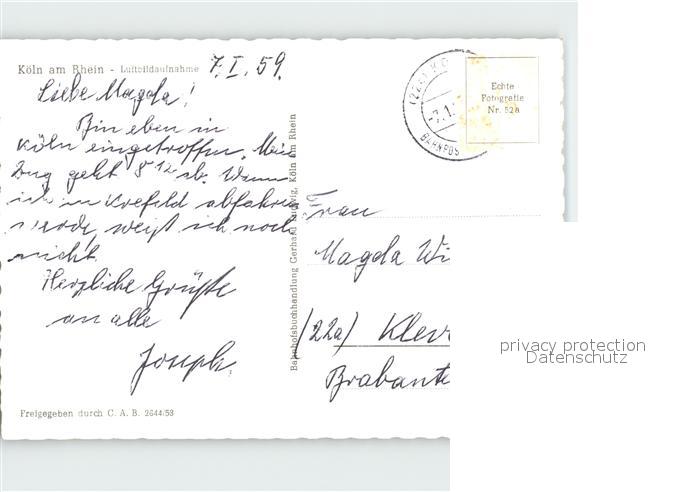 Köln am Rhein - Luftbildaufnahme
7.I.59.
Liebe Magda!
Bin eben in
Köln eingetroffen. Mein
Zug geht 8 12 ab. Wann
ich in Krefeld abfahren
werde, weiß ich noch
nicht.
Herzliche Grüße
an alle
Joseph.
Freigegeben durch C. A. B. 2644/53
Bahnhofsbuchhandlung Gerhard Ludwig, Köln am Rhein
(22c) KÖ
-7.1.
BAHNPOS
Echte
Fotografie
Nr. 52a
Frau
Magda Wi
(22a) Klev
Brabante
privacy protection
Datenschutz